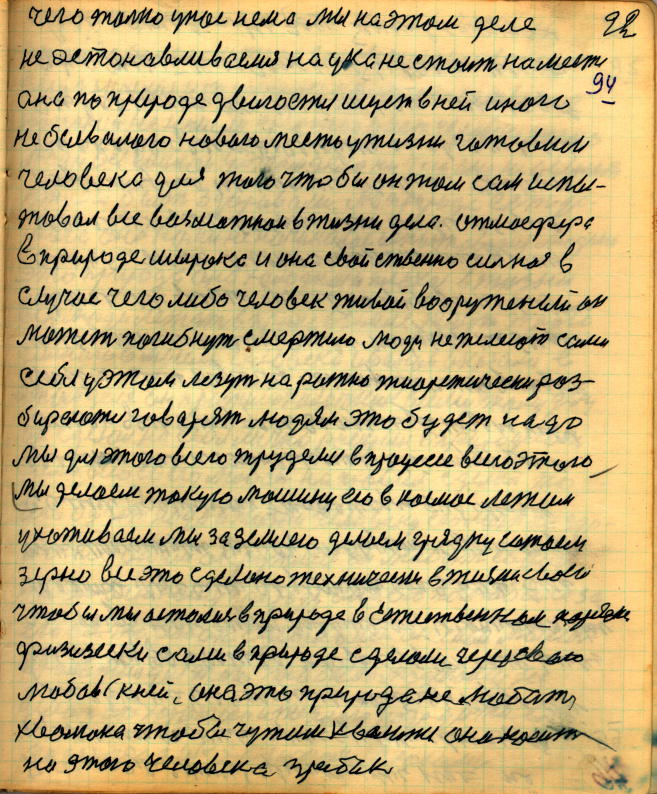 чего толко у нас нема мы на этом деле 92
не остонавливаемся наука не стоит на месте
94
она по природе двигается ищет в ней иного
не бувалого нового место у жизни готовим
человека для того чтобы он там сам испы-
товал все возможнои в жизни дела. Отмосфера
в природе широка и она свойственно силная в
случае чего либо человек живой вооруженый он
может погибнут смертию люди не жилеют сами
себя у этом лезут на
теоретически раз-
говарят людям это будет надо
мы для этого всего трудели в процессе всего этого
мы делоем такую машину его в космос летим
ухаживаем мы за землею делоем грядку
зерно все это сделоно технически в жизни своей
чтобы мы осталися в природе в естественном порядке
физически сами в природе сделоли через свою
любов к ней, она это природа не любит
чтобы чужим она
на этого человека грибок